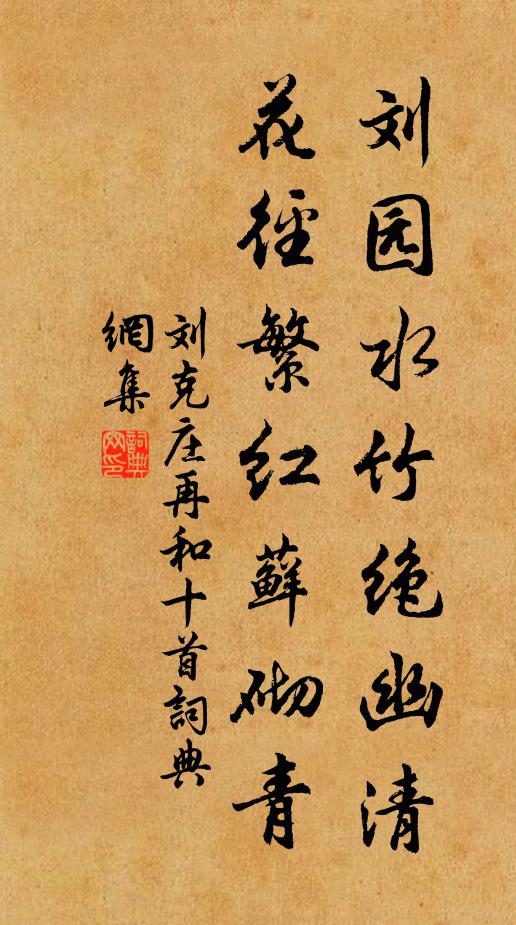 刘园水竹绝幽清
花径繁红藓砌青
刘克庄再和十首詞典
網集
詞典
网印